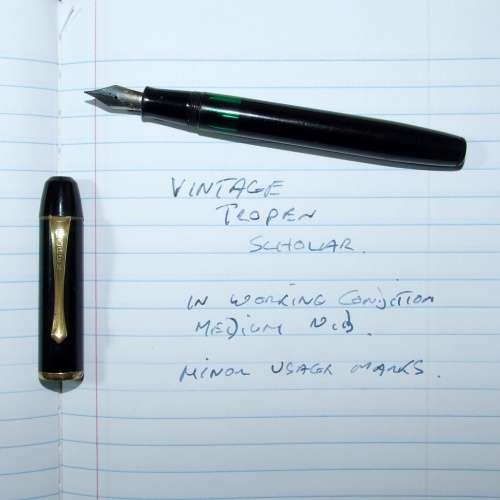 VINTAGE
TROPEN
SCHOLAR.
IN WORKING CONDITION
MEDIUM Nib.
MINOR USAGE MARKS.